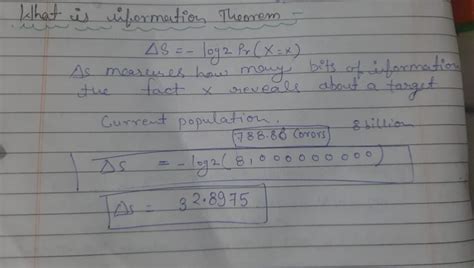 What is information Theorem -
ΔS = - log2 Pr(X=x)
Δs measures how many bits of information
the fact x reveals about a target
Current population.
788.86 (corors) 8 billion
ΔS = -log2(8,000000000)
Δs = 32.8975